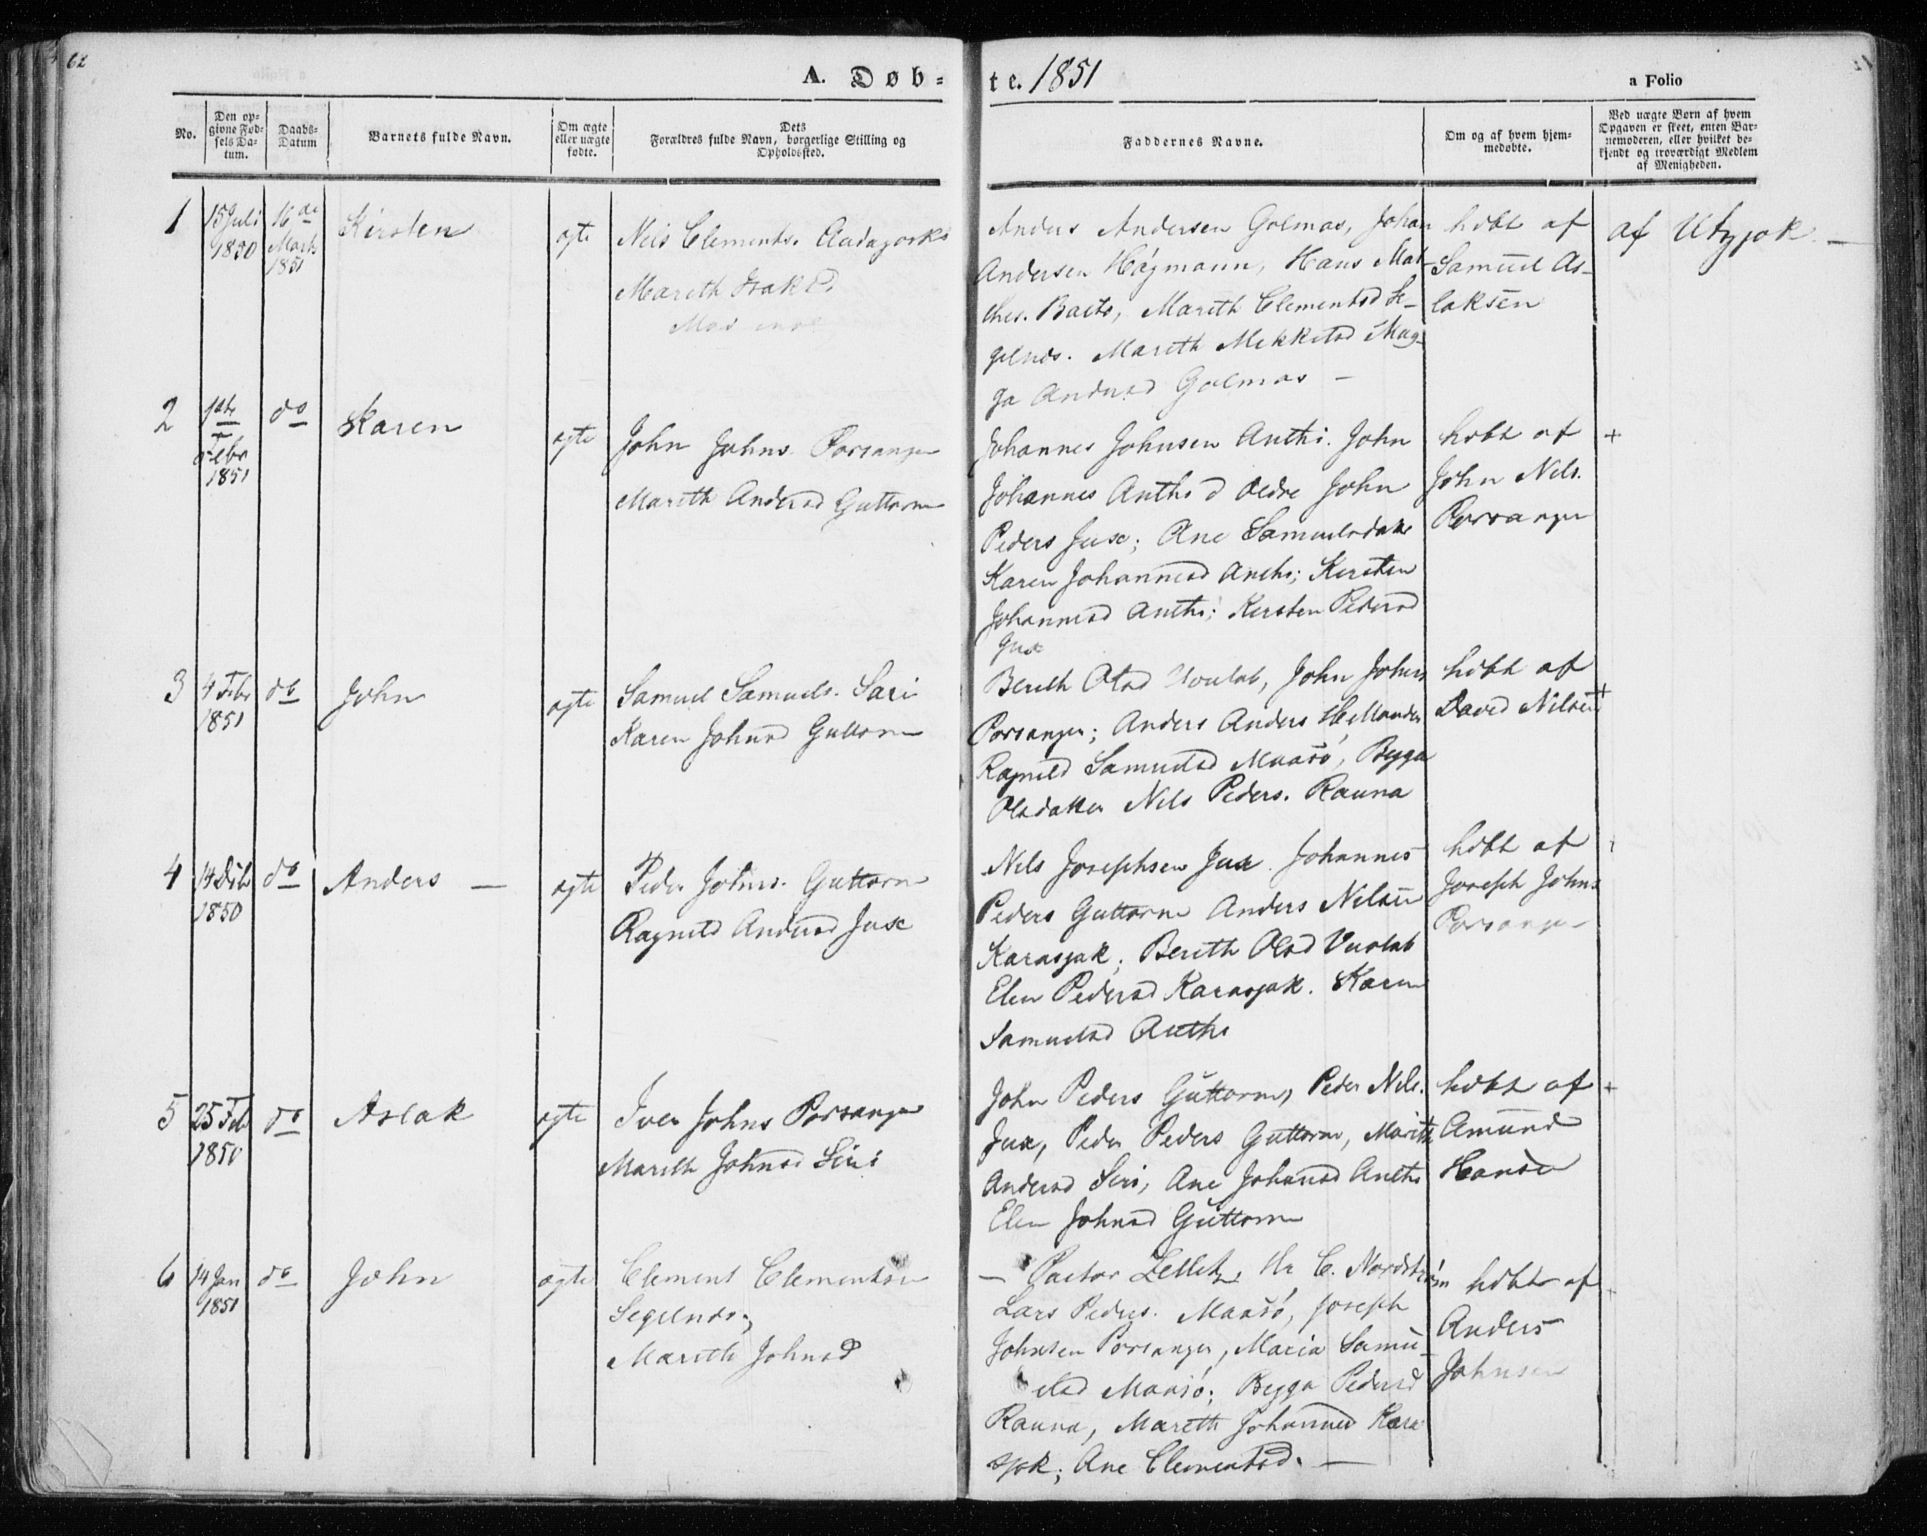 62
A. Døb-
te. 1851
a Folio
No.
Den op-
givne Fød-
sels Da-
tum.
Daabs-
Datum
Barnets fulde Navn.
Om ægte
eller uægte
fødte.
Dets
Forældres fulde Navn, borgerlige Stilling og
Opholdssted.
Faddernes Navne.
Om og af hvem hjem-
medøbte.
Ved uægte Børn af hvem
Opgaven er skeet, enten Bar-
nemoderen, eller hvilket be-
kjendt og troværdigt Medlem
af Menigheden.
1
15 Juli
1850
16 de
Marts
1851
Kirsten
ægte
Nels Clements.
Mareth Isaks D.
Anders Andersen Golmas, Johan
Andersen Högmann, Hans Mat-
thes. Baito, Mareth Clementsd Se-
gelnds. Mareth Mekkelsd Mag-
ga Andersd Golmas —
hdbt af
Samuel As-
laksen
af Utzjok. —
2
1ste
Febr
1851
do
Karen
ægte
John Johns. Porsanger
Mareth Andersd Guttorm
Johannes Johnsen Anthi. John
Johannes Anthi d ældre John
Peders Jux; Ane Samuelsdatter
Karen Johannesd Anthi; Kirsten
Johannesd Anthi; Kirsten Pedersd
Jux
hdbt af
John Nils.
Porsanger
+
3
4 Febr
1851
do
John
ægte
Samuel Samuels. Sari
Karen Johnsd Guttorm
Bereth Olsd Vuolab, John Johns
Porsanger; Anders Anders Hellander
Ragnild Samuelsd Maasö, Bigga
Olsdatter Nels Peders. Rauna
hdbt af
David Nilsen
+
4
14 Dcb
1850
do
Anders —
ægte
Peder Johns. Guttorm
Ragnild Andersd Jux
Nels Josephsen Jux. Johannes
Peders Guttorm Anders Nilsen
Karasjok; Bereth Olsd Vuolab
Elen Pedersd Karasjok. Karen
Samuelsd Anthi
hdbt af
Joseph Johns
Porsanger
5
25 Feb
1850
do
Aslak
ægte
Iver Johns Porsanger
Mareth Johnsd Siri
John Peders Guttorm, Peder Nels.
Jux, Peder Peders Guttorm, Mareth
Andersd Siri, Ane Johnsd Anthi
Elen Johnsd Guttorm
hdbt af
Amund
Hansen
+
6
14 Jan
1851
do
John
ægte
Clement Clementsen
Segelnds,
Mareth Johnsd
— Pastor Zetlitz, Hr C. Nordström
Lars Peders. Maasö, Joseph
Johnsen Porsanger, Maria Samu-
elsd Maasö; Bigga Pedersd
Rauna, Mareth Johannesd Kara
sjok; Ane Clementsd. —
hdbt af
Anders
Johnsen
+